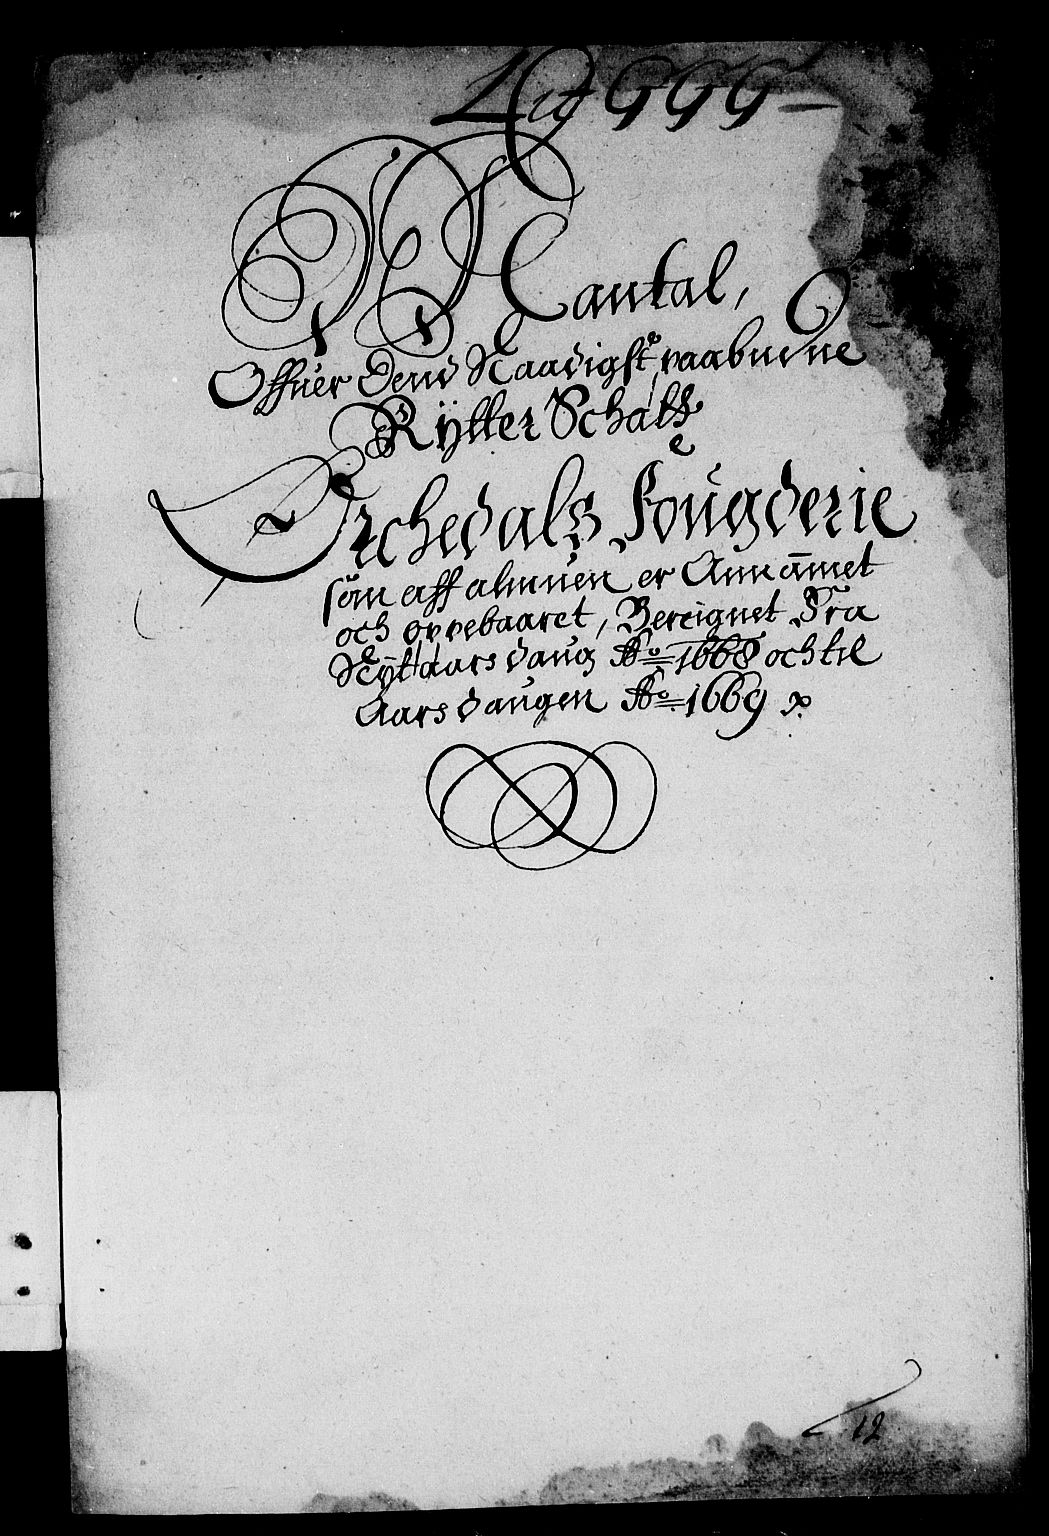 Lit GGG
Mantal,
Offuer Dend Naadigst paabudne
Rÿtter Schatt
Orchedals Fougderie
som aff almuen er Annammet
och oppebaaret, Bereignet Fra
Nÿttaars daug Ao 1668 och til
Aars daugen Ao 1669
12